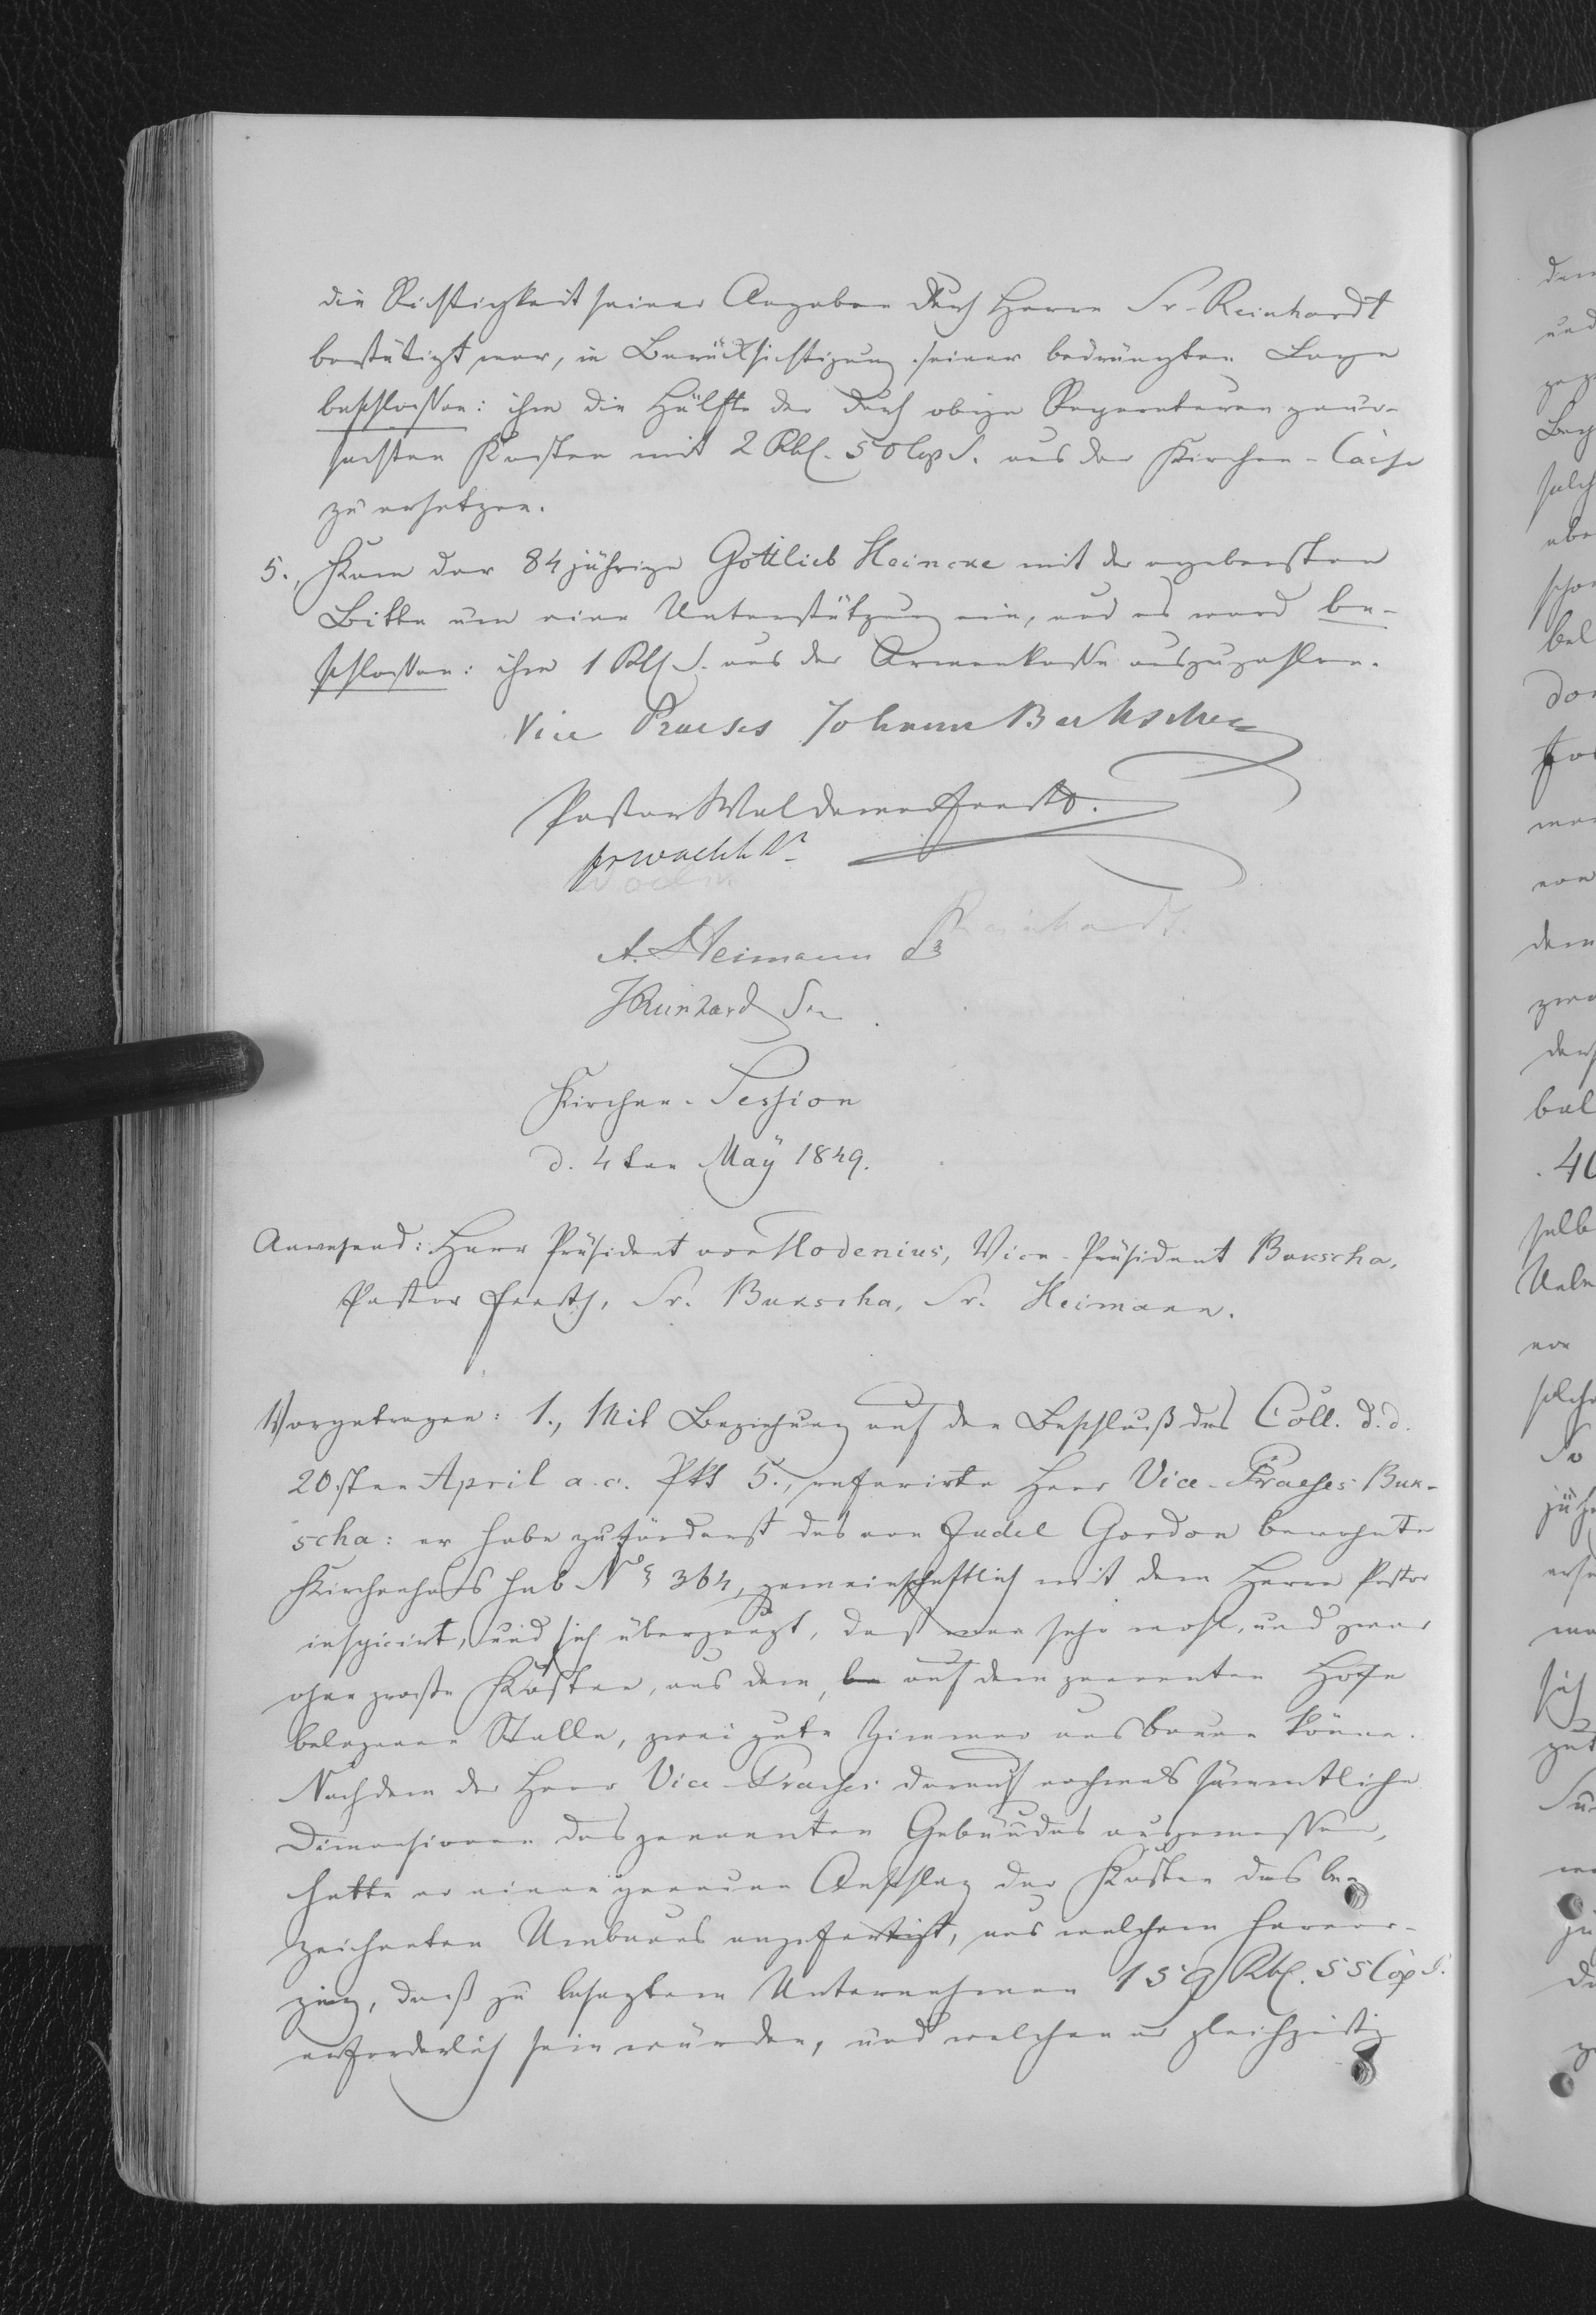 die Richtigkeit seiner Angaben durch Herrn Sr. Reinhardt
bestätigt war, in Berücksichtigung seiner bedrängten Lage
beschlossen: ihm die Hälfte der durch obige Reparaturen verur-
sachten Kosten mit 2 Rbl. 50 Cop S. aus der Kirchen-Casse
zu ersetzen.
5., Kam der 84 jährige Gottlieb Heincke mit der ergebensten
Bitte um eine Unterstützung ein, und es ward be-
schlossen: ihm 1 Rbl S. aus der Armenkasse auszuzahlen.
Vice Praeses Johann Bukscha
Pastor Woldemar Freeth.
A. Heimann
J Reinhard Sr
Reinhardt.
Kirchen-Session
d. 4ten Maÿ 1849.
Anwesend: Herr Präsident von Modenius, Vice-Präsident Bukscha,
Pastor Sr. Bukscha, Sr. Heimann.
Vorgetragen: 1., Mit Beziehung auf den Beschluß des Coll. d. d.
20sten April a. c. Pkt 5., referirte Herr Vice-Praeses Buk-
scha: er habe zuförderst das von Judel Gordon bewohnte
Kirchenhaus sub No 364, gemeinschaftlich mit dem Herrn Pastor
inspicirt, und sich überzeugt, daß man sehr wohl, und zwar
ohne große Kosten, aus dem, be auf dem genannten Hofe
belegenen Stalle, zwei gute Zimmer ausbauen könne.
Nachdem der Herr Vice-Praeses darauf nochmals sämmtliche
Dimensionen des genannten Gebäudes ausgemessen,
hatte er einen genauen Anschlag der Kosten des be-
zeichneten Umbaues angefertigt, aus welchem hervor-
ging, daß zu besagtem Unternehmen 159 Rbl. 55 Cop S.
erforderlich sein würden, und welchen er gleichzeitig